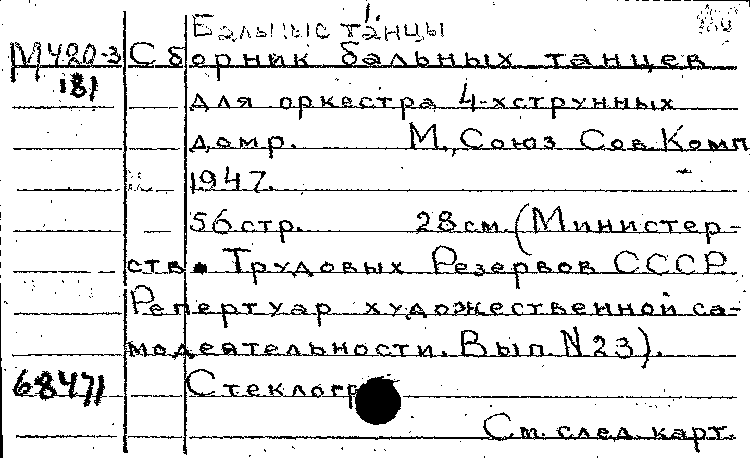 1.
Бальные танцы
М420-3 Сборник бальных танцев
181 для оркестра 4-хструнных
домр. М., Союз Сов. Комп
1947.
56 стр. 28 см. (Министер-
ств. Трудовых Резервов СССР
Репертуар художественной са-
модеятельности. Вып. N 23).
68471 Стеклогр
См. след. карт.